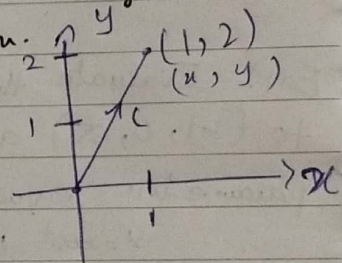 y
2
(1, 2)
(x, y)
1
C
x
1